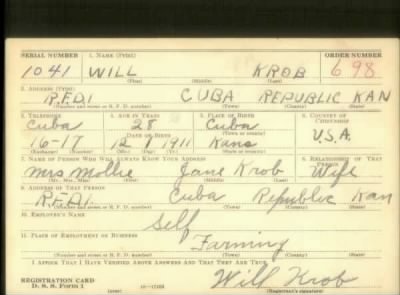 SERIAL NUMBER 1. NAME (Print) ORDER NUMBER
1041 WILL KROB 698
(First) (Middle) (Last)
2. ADDRESS (Print)
R.F.D.1 CUBA REPUBLIC KAN
(Number and street or R. F. D. number) (Town) (County) (State)
3. TELEPHONE 4. AGE IN YEARS 5. PLACE OF BIRTH 6. COUNTRY OF CITIZENSHIP
Cuba 28 Cuba
DATE OF BIRTH (Town or county) U.S.A.
16-17 12 8 1911 Kans
(Mo.) (Day) (Yr.) (State or country)
7. NAME OF PERSON WHO WILL ALWAYS KNOW YOUR ADDRESS 8. RELATIONSHIP OF THAT PERSON
Mrs Mollie Jane Krob Wife
(Mr., Mrs., Miss) (First) (Middle) (Last)
9. ADDRESS OF THAT PERSON
R.F.D.1. Cuba Republic Kan
(Number and street or R. F. D. number) (Town) (County) (State)
10. EMPLOYER'S NAME
Self
11. PLACE OF EMPLOYMENT OR BUSINESS
Farming
(Number and street or R. F. D. number) (Town) (County) (State)
I AFFIRM THAT I HAVE VERIFIED ABOVE ANSWERS AND THAT THEY ARE TRUE.
REGISTRATION CARD Will Krob
D. S. S. Form 1 (Registrant's signature)